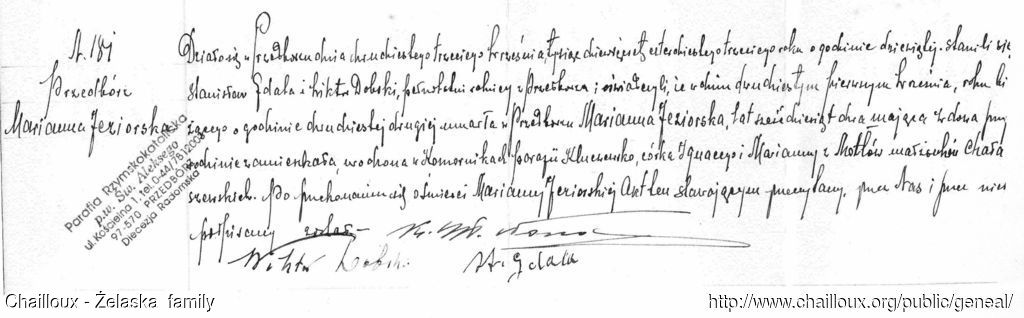 A. 181
Przedbórz
Marianna Jeziorska
Parafia Rzymskokatolicka
p.w. Św. Aleksego
ul. Kościelna 1, tel. 0-44/7812003
97-570 PRZEDBÓRZ
Diecezja Radomska
Działo się w Przedborzu dnia dwudziestego trzeciego września, tysiąc dziewięćset czterdziestego trzeciego roku o godzinie dziesiątej. Stawili się
Stanisław Gdala i Wiktor Dobski, pełnoletni rolnicy z Przedborza i oświadczyli, że w dniu dwudziestym pierwszym września, roku bi
żącego o godzinie dwudziestej drugiej umarła w Przedborzu Marianna Jeziorska, lat sześćdziesiąt dwa mająca wdowa przy
rodzinie zamieszkała, urodzona w Komornikach parafii Kluczewsko, córka Ignacego i Marianny z Motłów małżonków Chała
szewskich. Po przekonaniu się o śmierci Marianny Jeziorskiej Akt ten stawającym przeczytany, przez Nas i przez nich
podpisany został
Wiktor Dobski St. Gdala
Chailloux - Żelaska family
http://www.chailloux.org/public/geneal/